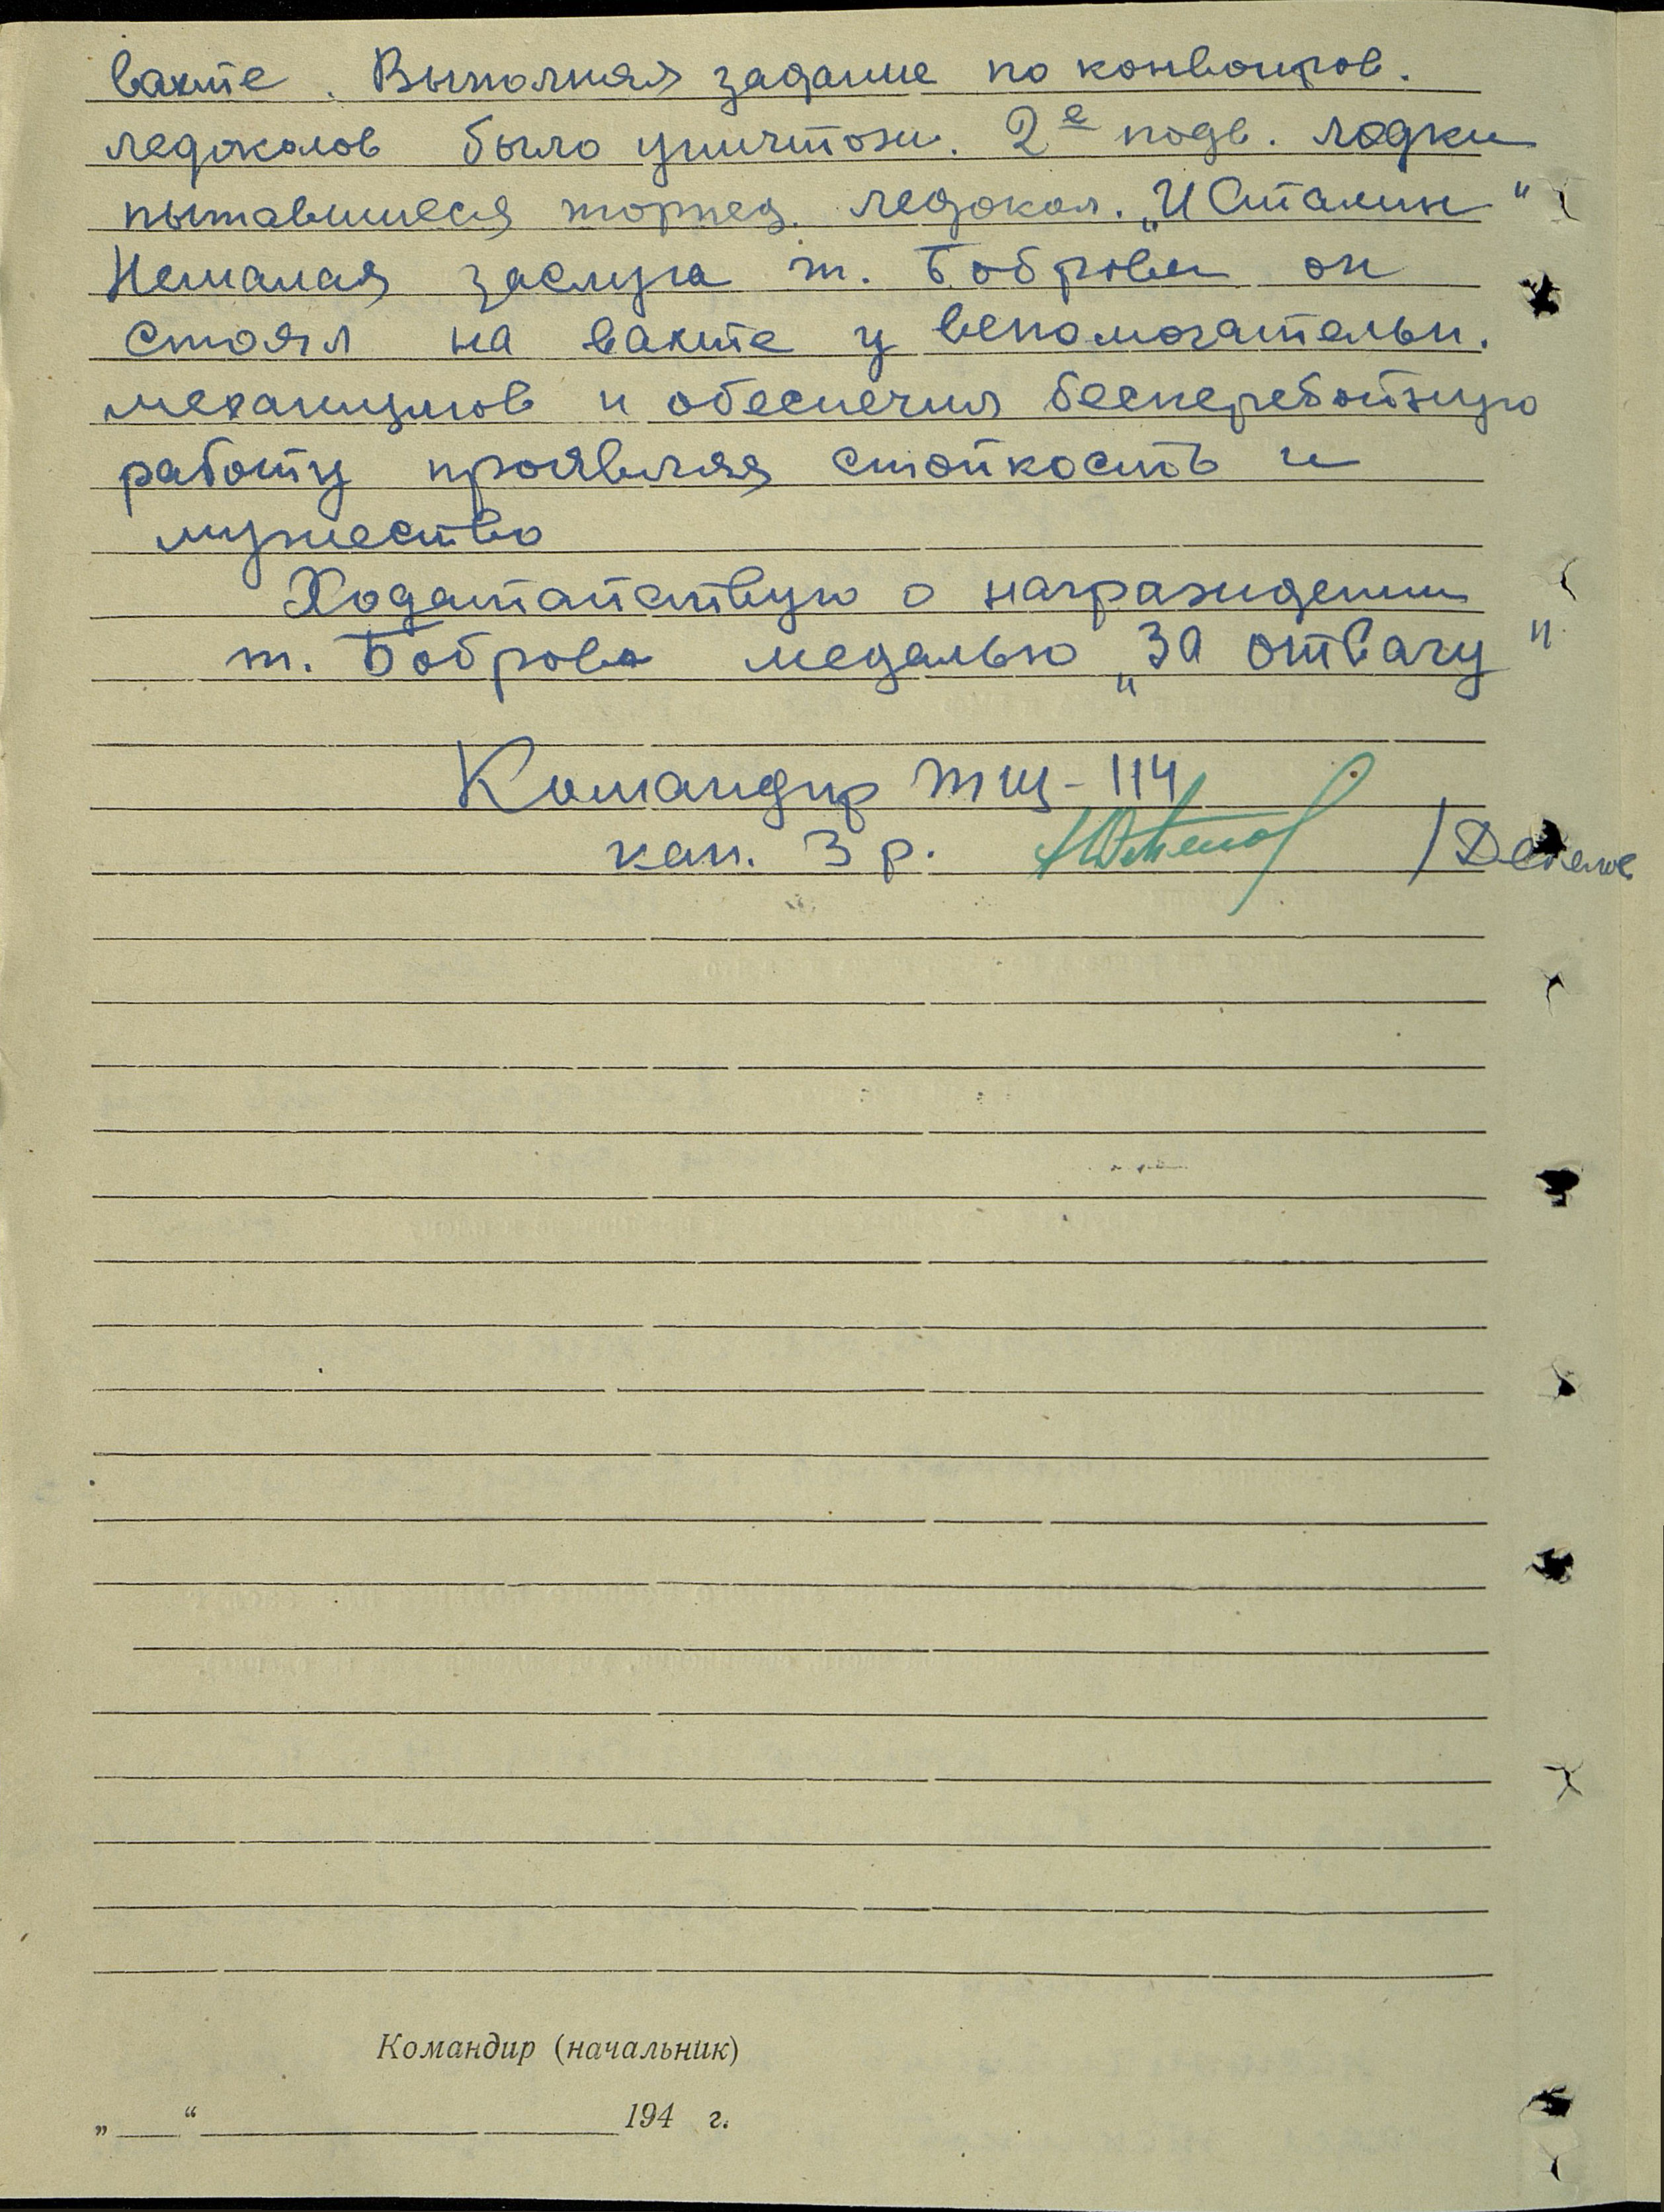 вахте. Выполняя задание по конвоиров.
ледоколов было уничтож. 2е подв. лодки
пытавшиеся торпед. ледокол. „И Сталин"
Немалая заслуга т. Боброва он
стоял на вахте у вспомогательн.
механизмов и обеспечил бесперебойную
работу проявляя стойкость и
мужество
Ходатайствую о награждении
т. Боброва медалью „За отвагу"
Командир тщ-114
кап. 3 р.
Командир (начальник)
„ " 194 г.